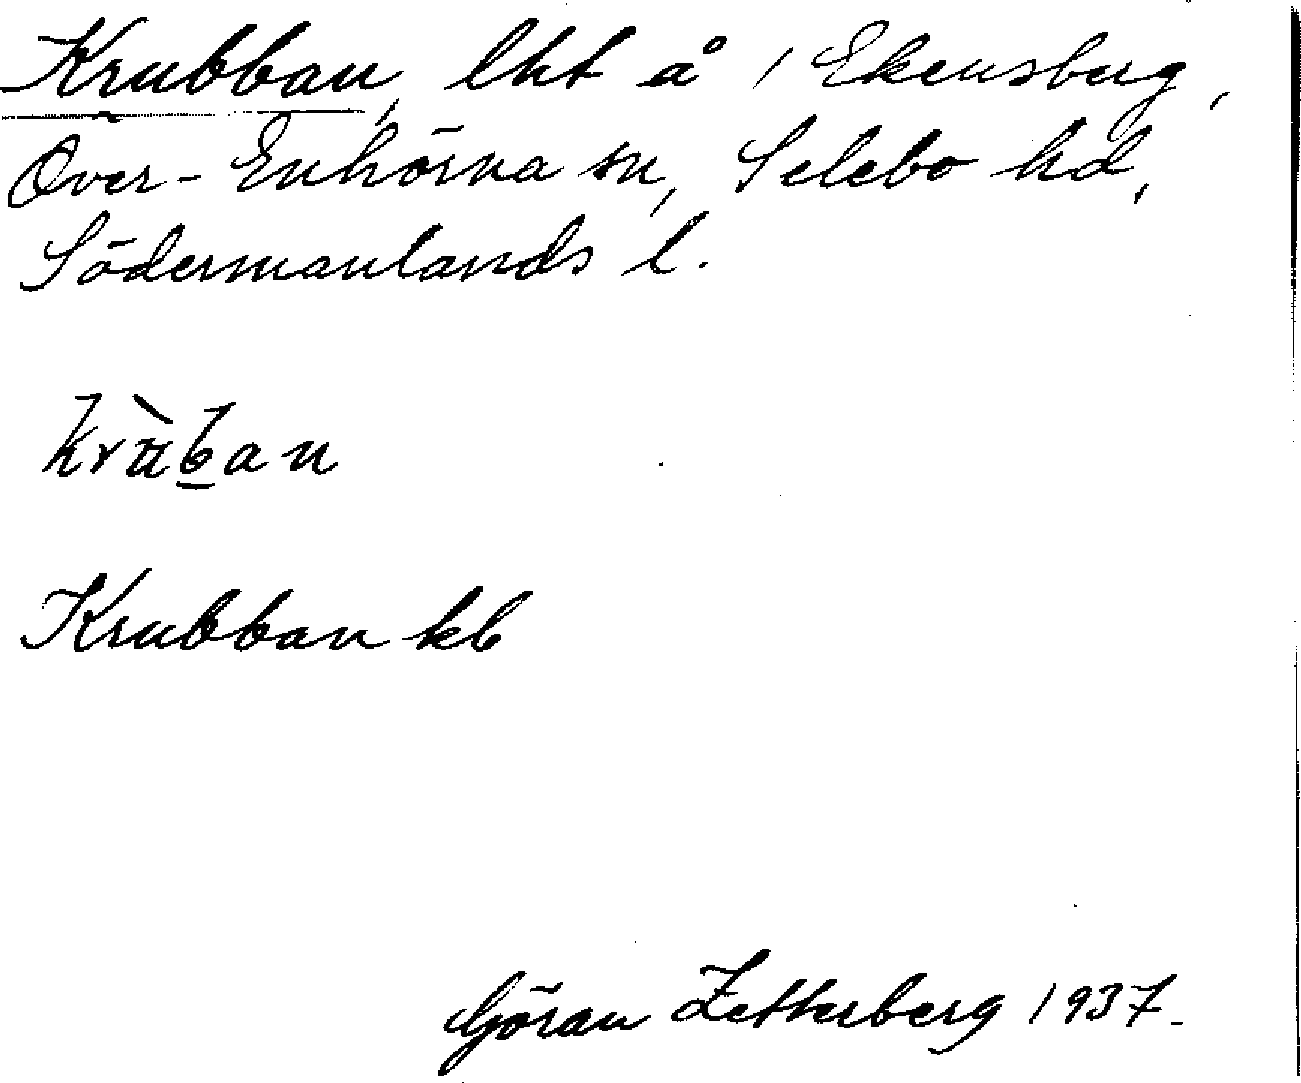 Krubban, lht å 1 Ekensberg,
Över-Enhörna sn, Selebo hd,
Södermanlands l.
kràban
Krubban kb
Göran Zetterberg 1937.